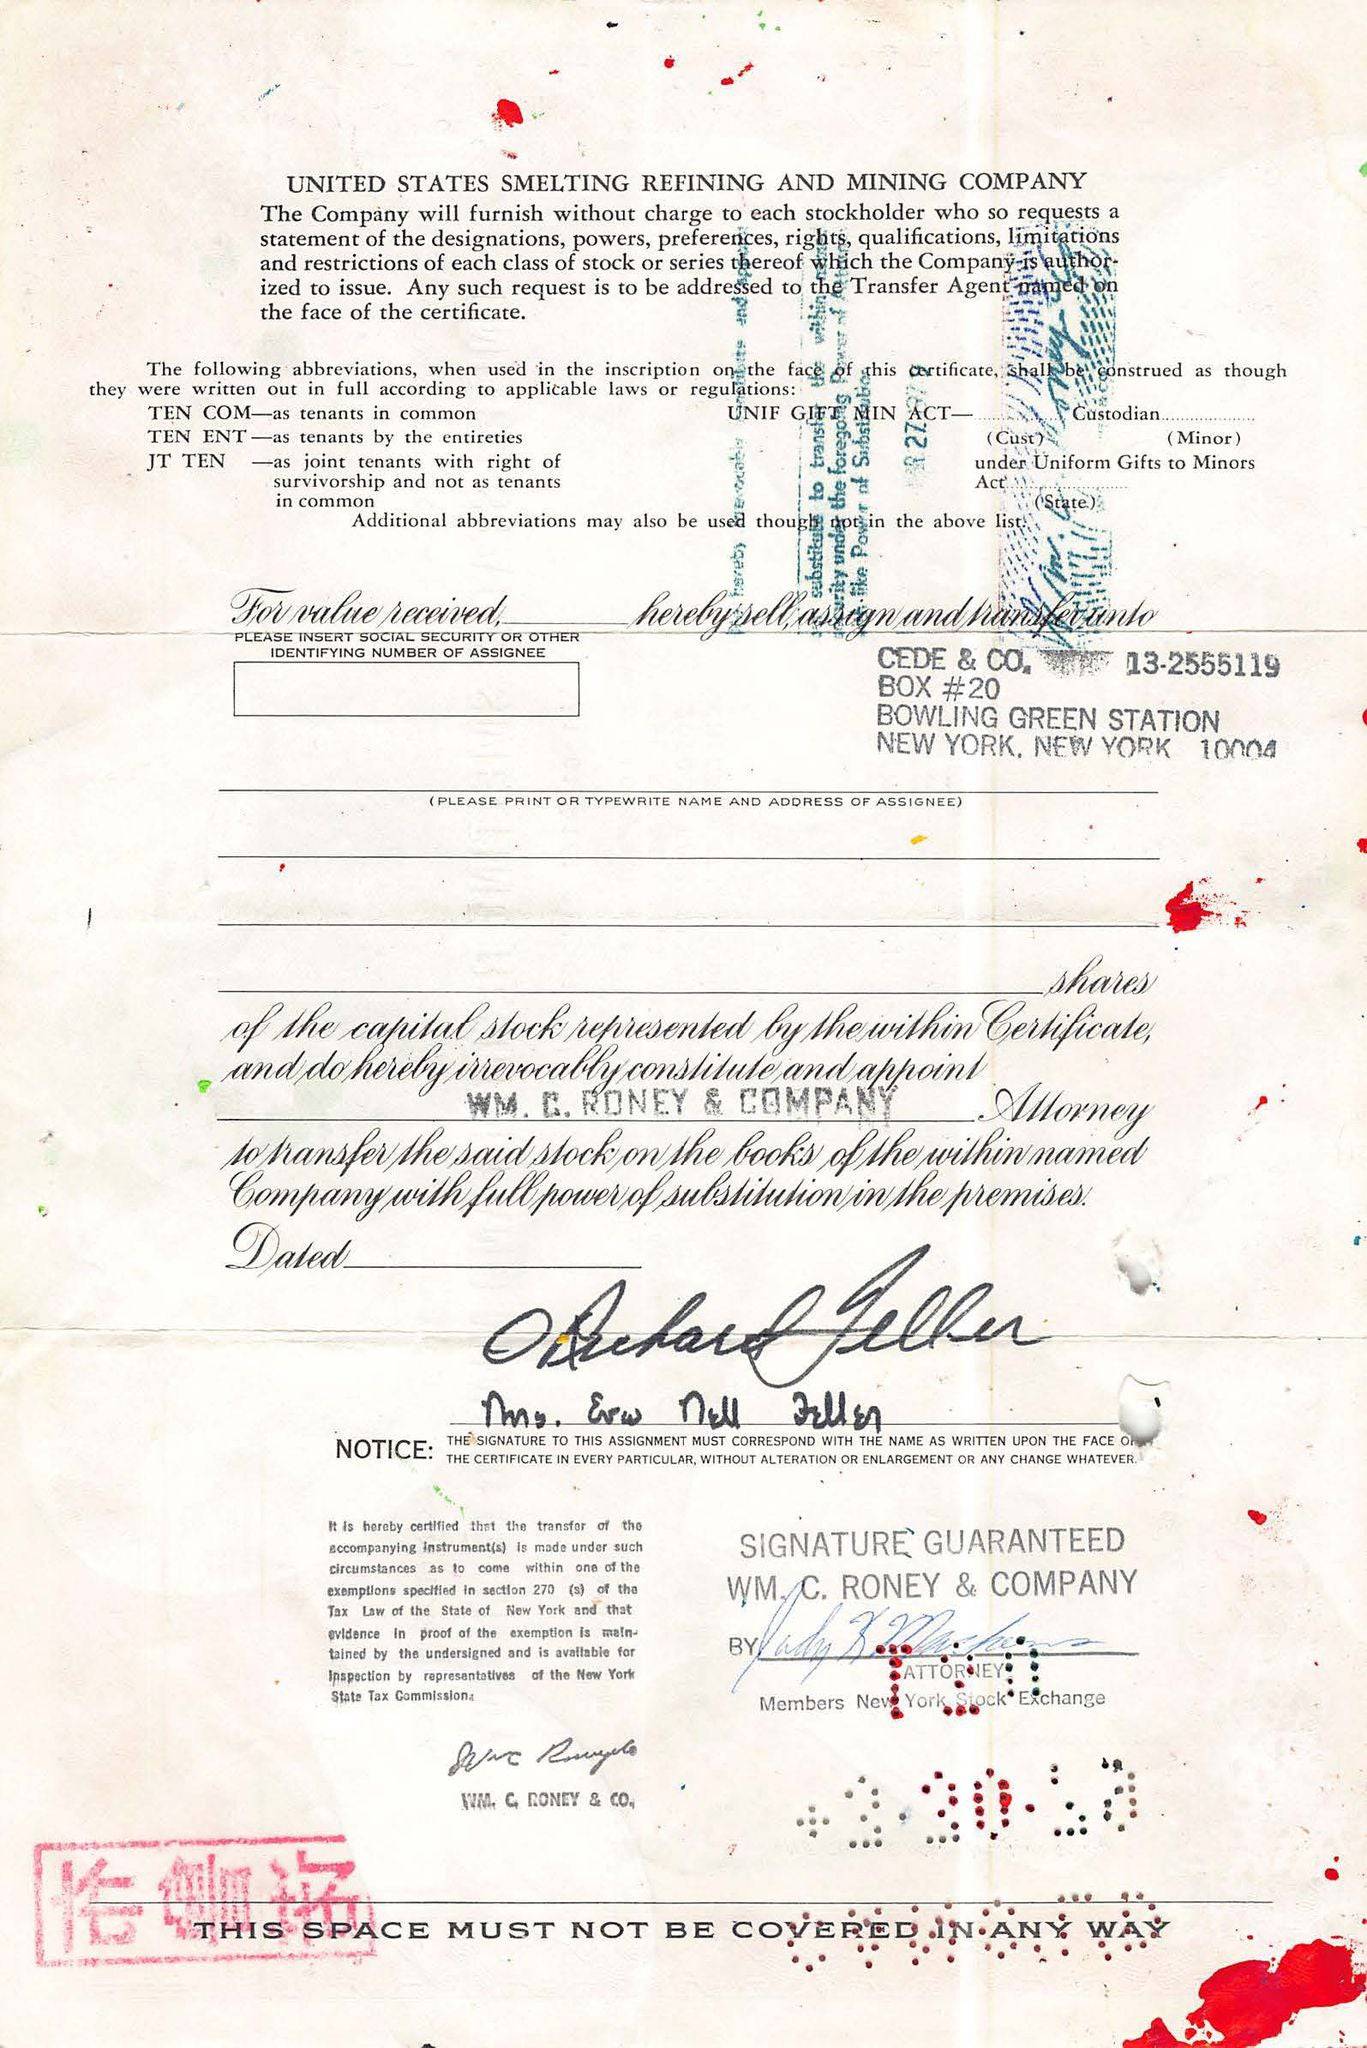 UNITED STATES SMELTING REFINING AND MINING COMPANY
The Company will furnish without charge to each stockholder who so requests a
statement of the designations, powers, preferences, rights, qualifications, limitations
and restrictions of each class of stock or series thereof which the Company is author-
ized to issue. Any such request is to be addressed to the Transfer Agent named on
the face of the certificate.
The following abbreviations, when used in the inscription on the face of this certificate, shall be construed as though
they were written out in full according to applicable laws or regulations:
TEN COM—as tenants in common
TEN ENT—as tenants by the entireties
JT TEN —as joint tenants with right of
survivorship and not as tenants
in common
UNIF GIFT MIN ACT— Custodian
(Cust) (Minor)
under Uniform Gifts to Minors
Act
(State)
Additional abbreviations may also be used though not in the above list.
hereby irrevocably
substitute to transfer the within
security under the foregoing Power of
like Power of Substitution
For value received, hereby sell, assign and transfer unto
PLEASE INSERT SOCIAL SECURITY OR OTHER
IDENTIFYING NUMBER OF ASSIGNEE
CEDE & CO. 13-2555119
BOX #20
BOWLING GREEN STATION
NEW YORK, NEW YORK 10004
(PLEASE PRINT OR TYPEWRITE NAME AND ADDRESS OF ASSIGNEE)
shares
of the capital stock represented by the within Certificate,
and do hereby irrevocably constitute and appoint
WM. C. RONEY & COMPANY Attorney
to transfer the said stock on the books of the within named
Company with full power of substitution in the premises.
Dated
Richard Feller
Mrs. Eva Nell Feller
NOTICE: THE SIGNATURE TO THIS ASSIGNMENT MUST CORRESPOND WITH THE NAME AS WRITTEN UPON THE FACE OF
THE CERTIFICATE IN EVERY PARTICULAR, WITHOUT ALTERATION OR ENLARGEMENT OR ANY CHANGE WHATEVER.
It is hereby certified that the transfer of the
accompanying instrument(s) is made under such
circumstances as to come within one of the
exemptions specified in section 270 (s) of the
Tax Law of the State of New York and that
evidence in proof of the exemption is main-
tained by the undersigned and is available for
inspection by representatives of the New York
State Tax Commission.
WM. C. RONEY & CO.
SIGNATURE GUARANTEED
WM. C. RONEY & COMPANY
BY
ATTORNEY
Members New York Stock Exchange
THIS SPACE MUST NOT BE COVERED IN ANY WAY